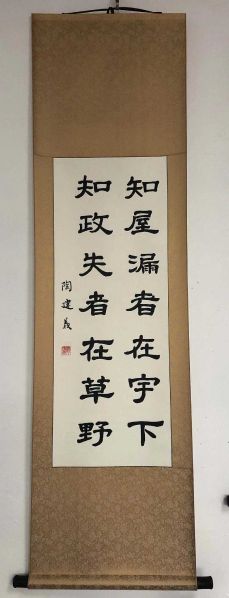 知屋漏者在宇下
知政失者在草野
陶建義